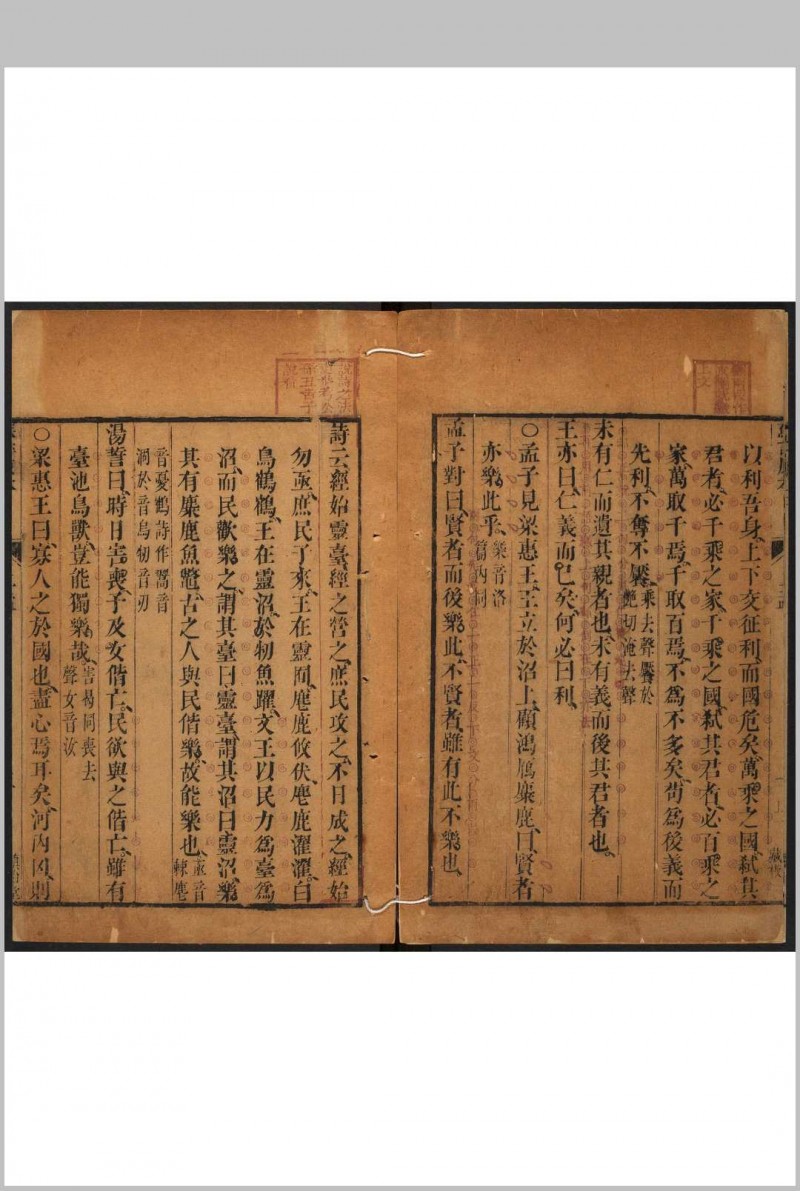 以利吾身上下交征利而國危矣萬乘之國弑其
君者必千乘之家千乘之國弑其君者必百乘之
家萬取千焉千取百焉不爲不多矣茍爲後義而
先利不奪不饜乘去聲饜於
艶切淹去聲
未有仁而遺其親者也未有義而後其君者也
王亦曰仁義而已矣何必曰利
○孟子見梁惠王王立於沼上顧鴻鴈麋鹿曰賢者
亦樂此乎樂音洛
篇內同
孟子對曰賢者而後樂此不賢者雖有此不樂也
詩云經始靈臺經之營之庶民攻之不日成之經始
勿亟庶民子來王在靈囿麀鹿攸伏麀鹿濯濯白
鳥鶴鶴王在靈沼於牣魚躍文王以民力爲臺爲
沼而民歡樂之謂其臺曰靈臺謂其沼曰靈沼樂
其有麋鹿魚鼈古之人與民偕樂故能樂也亟音
棘麀
音憂鶴詩作翯音
涸於音烏牣音刃
湯誓曰時日害喪予及女偕亡民欲與之偕亡雖有
臺池鳥獸豈能獨樂哉害曷同喪去
聲女音汝
○梁惠王曰寡人之於國也盡心焉耳矣河內凶則